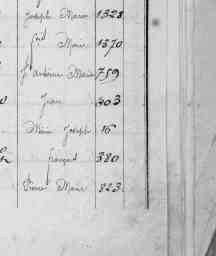 Joseph Marie 1328
Marie 1370
Antoine Marie 759
Jean 403
Marie Joseph 16
François 380
Pierre Marie 823